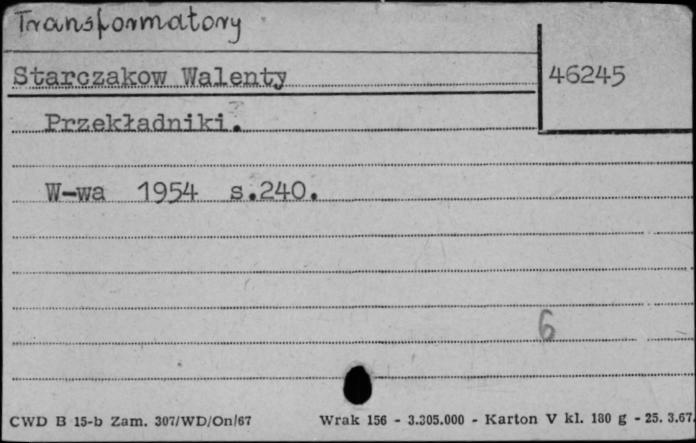 Transformatory
Starczakow Walenty
46245
Przekładniki.
W-wa 1954 s.240.
6
CWD B 15-b Zam. 307/WD/On/67 Wrak 156 - 3.305.000 - Karton V kl. 180 g - 25. 3.67.